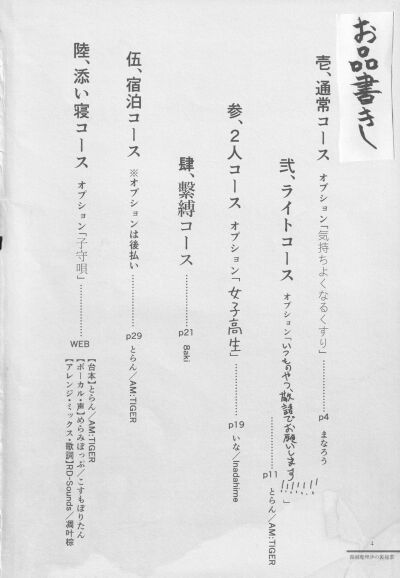 お品書きし
壱、通常コース オプション「気持ちよくなるくすり」…………p4 まなろう
弐、ライトコース オプション「いつものやつ、敬語でお願いします!!!!!!」…………p11 とらん/AM:TIGER
参、2人コース オプション「女子高生」…………p19 いな/Inadahime
肆、繫縛コース…………p21 8aki
伍、宿泊コース ※オプションは後払い…………p29 とらん/AM:TIGER
陸、添い寝コース オプション「子守唄」…………WEB
【台本】とらん/AM:TIGER
【ボーカル・声】めらみぽっぷ/こすもぽりたん
【アレンジ・ミックス・歌詞】RD-Sounds/凋叶棕
4